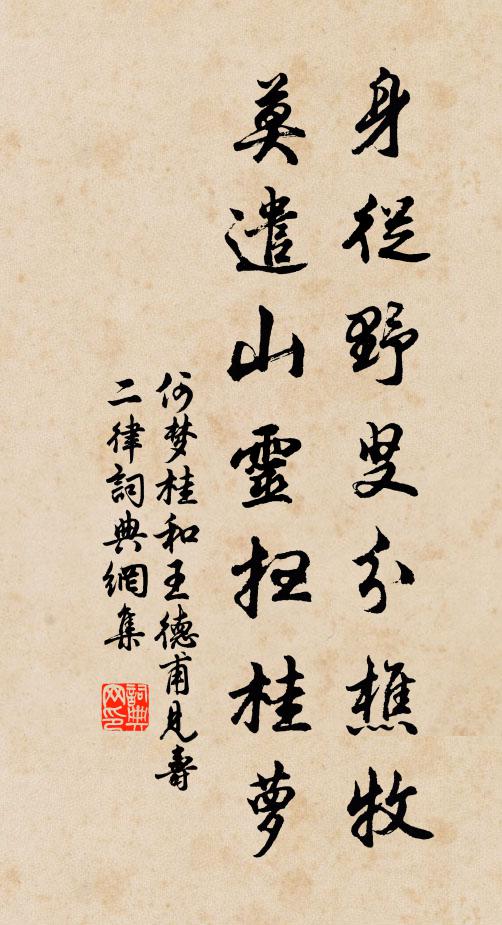 身從野叟分樵牧
莫遣山靈扭桂萝
何梦桂和王德甫見壽
二律詞典網集
詞典网印